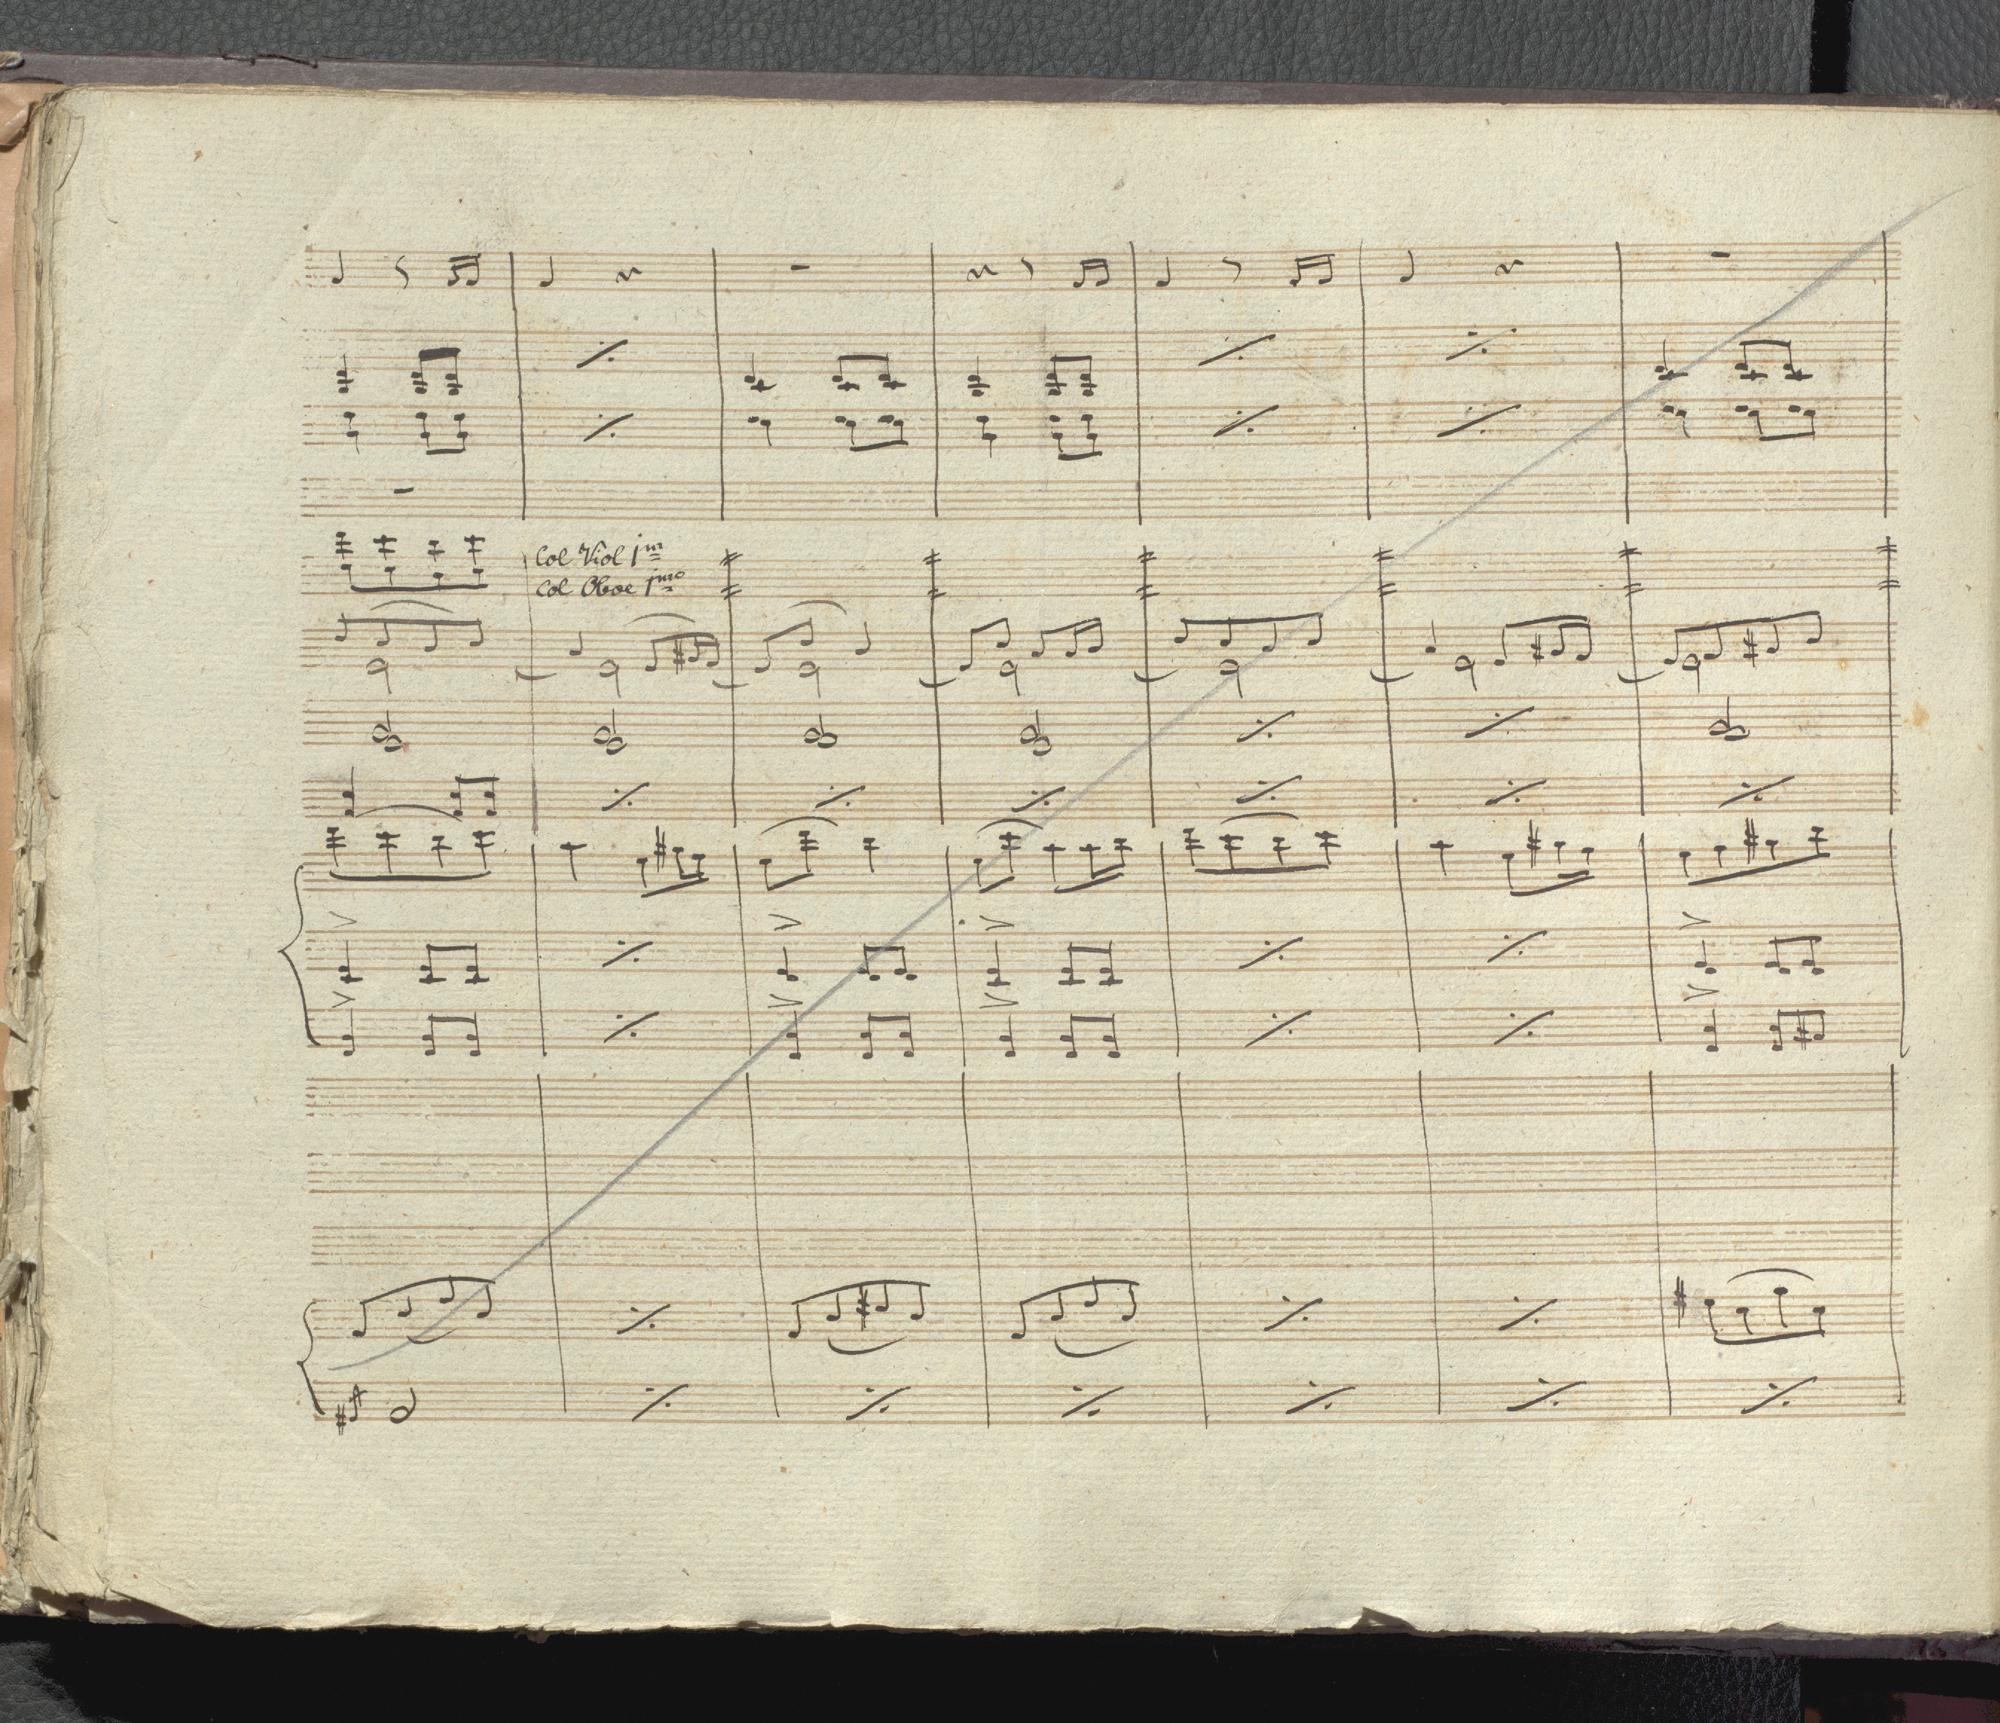 Col Viol 1mo
Col Oboe 1mo